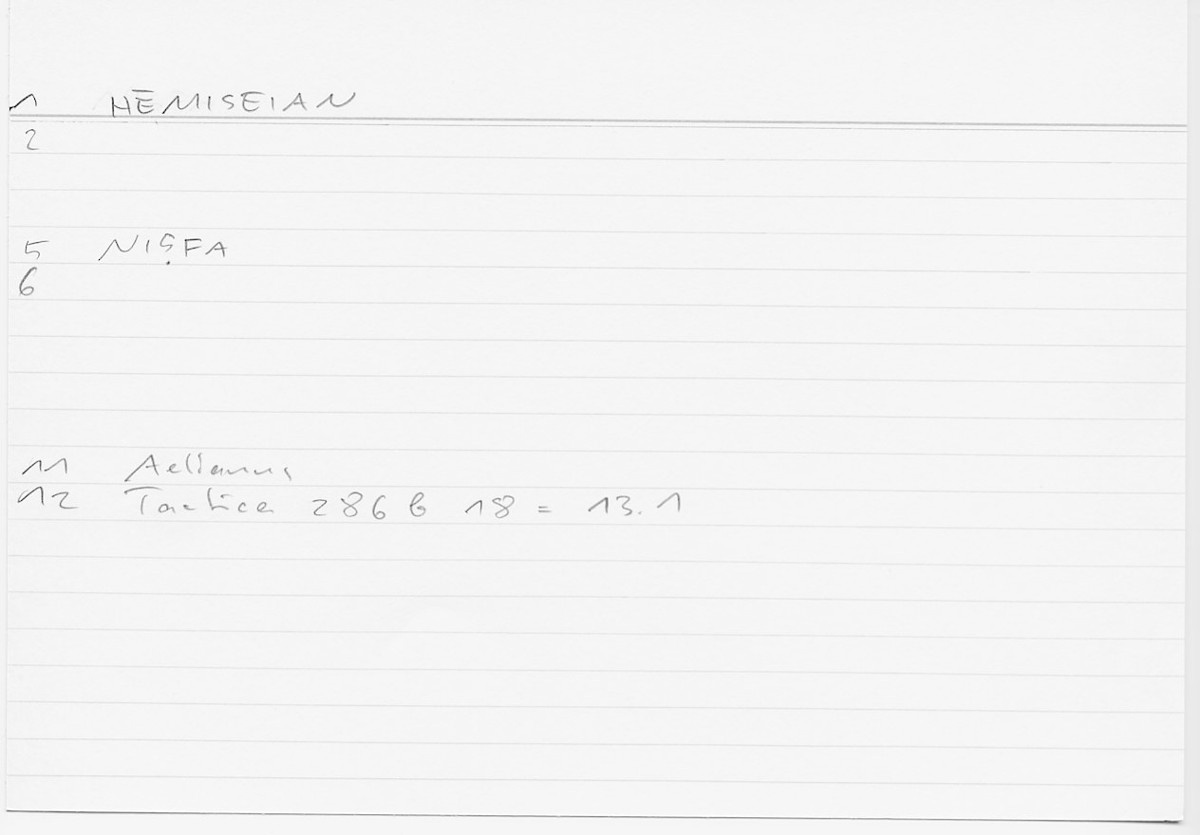 1 HĒMISEIAN
2
5 NIṢFA
6
11 Aelianus
12 Tactica 286 b 18 = 13.1